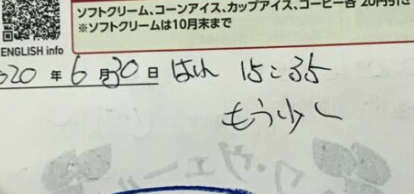 ソフトクリーム、コーンアイス、カップアイス、コーヒー各 20円引き
※ソフトクリームは10月末まで
ENGLISH info
020 年 6 月 30 日 はれ 15:35
もう少し